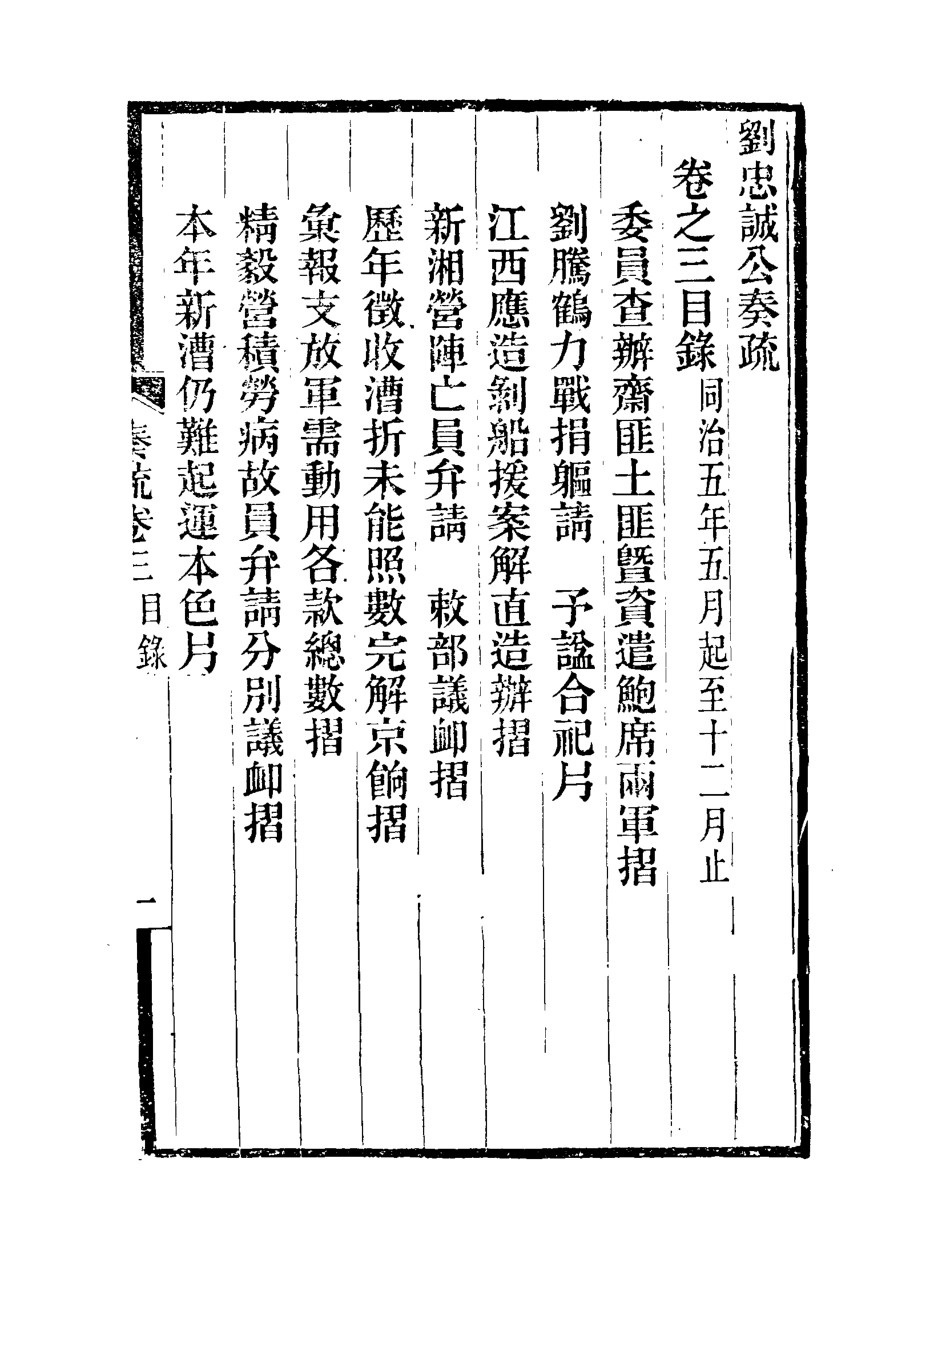 劉忠誠公奏疏
卷之三目錄同治五年五月起至十二月止
委員查辦齋匪土匪曁資遣鮑席兩軍摺
劉騰鶴力戰捐軀請　予諡合祀片
江西應造剝船援案解直造辦摺
新湘營陣亡員弁請　敕部議卹摺
歷年徵收漕折未能照數完解京餉摺
彙報支放軍需動用各款總數摺
精毅營積勞病故員弁請分別議卹摺
本年新漕仍難起運本色片
奏疏卷三　目錄　一